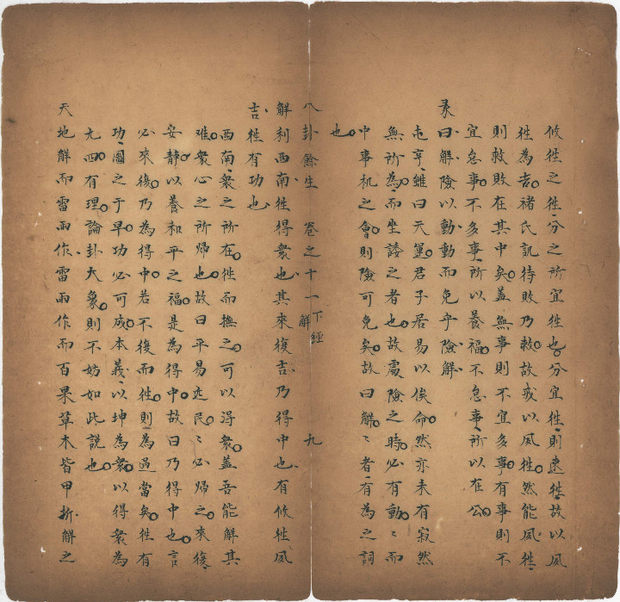 攸往之往分之所宜往也分宜往則速往故以夙
往為吉褚氏說待敗乃救故或以夙往然能夙往
則救敗在其中矣蓋無事則不宜多事有事則不
宜怠事不多事所以養福不怠事所以在公
彖曰解險以動動而免乎險解
屯亨雖曰天運君子居易以俟命然亦未有寂然
無所為而坐諉之者也故處險之時必有動動而
中事机之會則險可免矣故曰解解者有為之詞
也
八卦餘生 卷之十一 下經 解 九
解利西南往得衆也其來復吉乃得中也有攸往夙
吉往有功也
西南衆之所在往而撫之可以得衆蓋吾能解其
难衆心之所歸也故曰平易近民民必歸之來復
安靜以養和平之福是為得中故曰乃得中也言
必來復乃為得中若不復而往則為過當矣往有
功圖之于早功必可成本義以坤為衆以得衆為
九四有理論卦大象則不妨如此說也
天地解而雷雨作雷雨作而百果草木皆甲拆解之